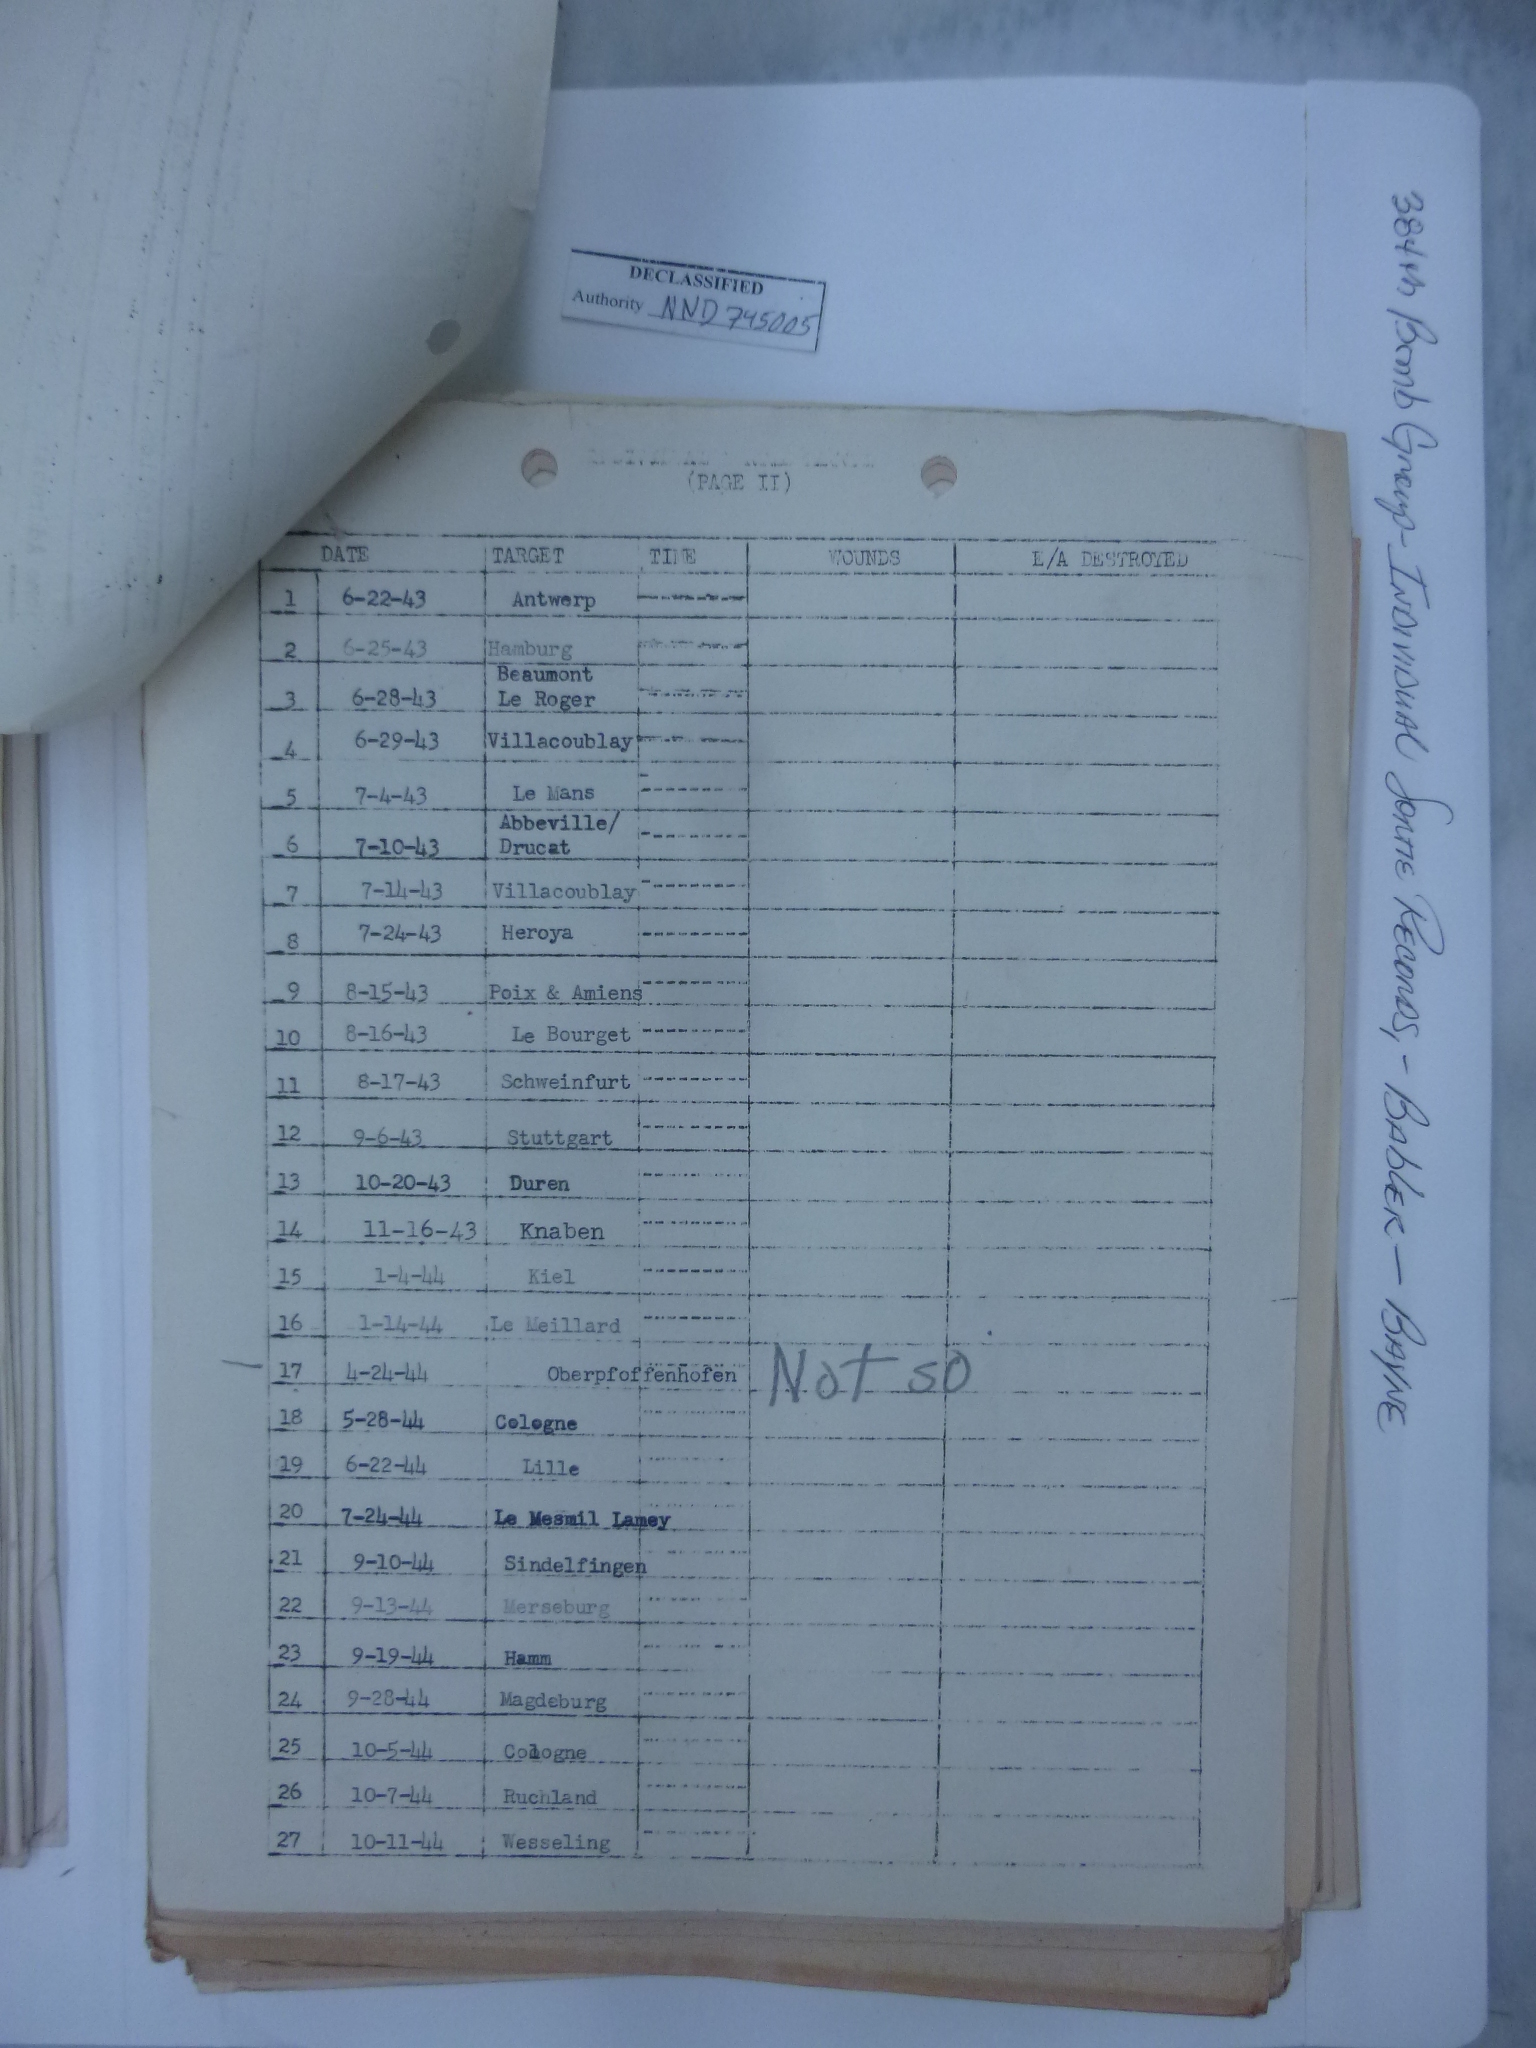 DECLASSIFIED
Authority NND 745005
384th Bomb Group - Individual Sortie Records, - Babler — Bayne
(PAGE II)
DATE TARGET TIME WOUNDS E/A DESTROYED
1 6-22-43 Antwerp
2 6-25-43 Hamburg
Beaumont
3 6-28-43 Le Roger
4 6-29-43 Villacoublay
5 7-4-43 Le Mans
Abbeville/
6 7-10-43 Drucat
7 7-14-43 Villacoublay
8 7-24-43 Heroya
9 8-15-43 Poix & Amiens
10 8-16-43 Le Bourget
11 8-17-43 Schweinfurt
12 9-6-43 Stuttgart
13 10-20-43 Duren
14 11-16-43 Knaben
15 1-4-44 Kiel
16 1-14-44 Le Meillard
17 4-24-44 Oberpfoffenhofen Not so
18 5-28-44 Cologne
19 6-22-44 Lille
20 7-24-44 Le Mesmil Lamey
21 9-10-44 Sindelfingen
22 9-13-44 Merseburg
23 9-19-44 Hamm
24 9-28-44 Magdeburg
25 10-5-44 Cologne
26 10-7-44 Ruchland
27 10-11-44 Wesseling